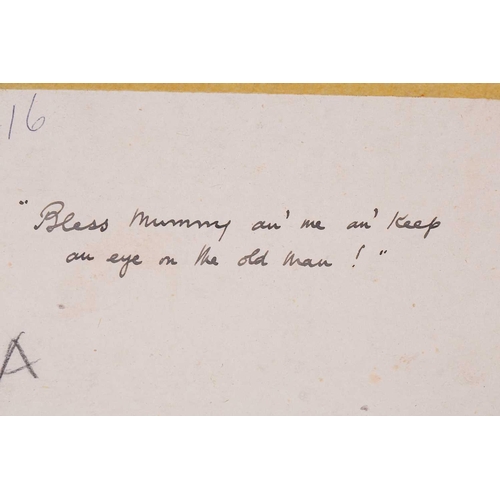 16
"Bless Mummy an' me an' Keep
an eye on the old man! "
A